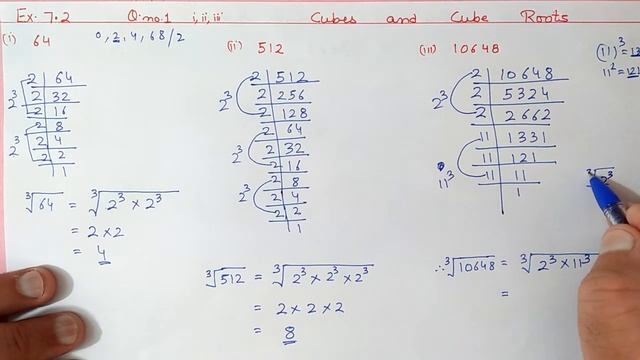 Ex. 7.2 Q.no.1 i, ii, iii Cubes and Cube Roots
(i) 64 0, 2, 4, 6 8/2
2 | 64
2 | 32
2 | 16
2 | 8
2 | 4
2 | 2
1
2³
2³
∛64 = ∛2³ × 2³
= 2 × 2
= 4
(ii) 512
2 | 512
2 | 256
2 | 128
2 | 64
2 | 32
2 | 16
2 | 8
2 | 4
2 | 2
1
2³
2³
2³
∛512 = ∛2³ × 2³ × 2³
= 2 × 2 × 2
= 8
(iii) 10648
2 | 10648
2 | 5324
2 | 2662
11 | 1331
11 | 121
11 | 11
1
2³
11³
∴ ∛10648 = ∛2³ × 11³
=
(11)³ = 13
11² = 121
∛2³